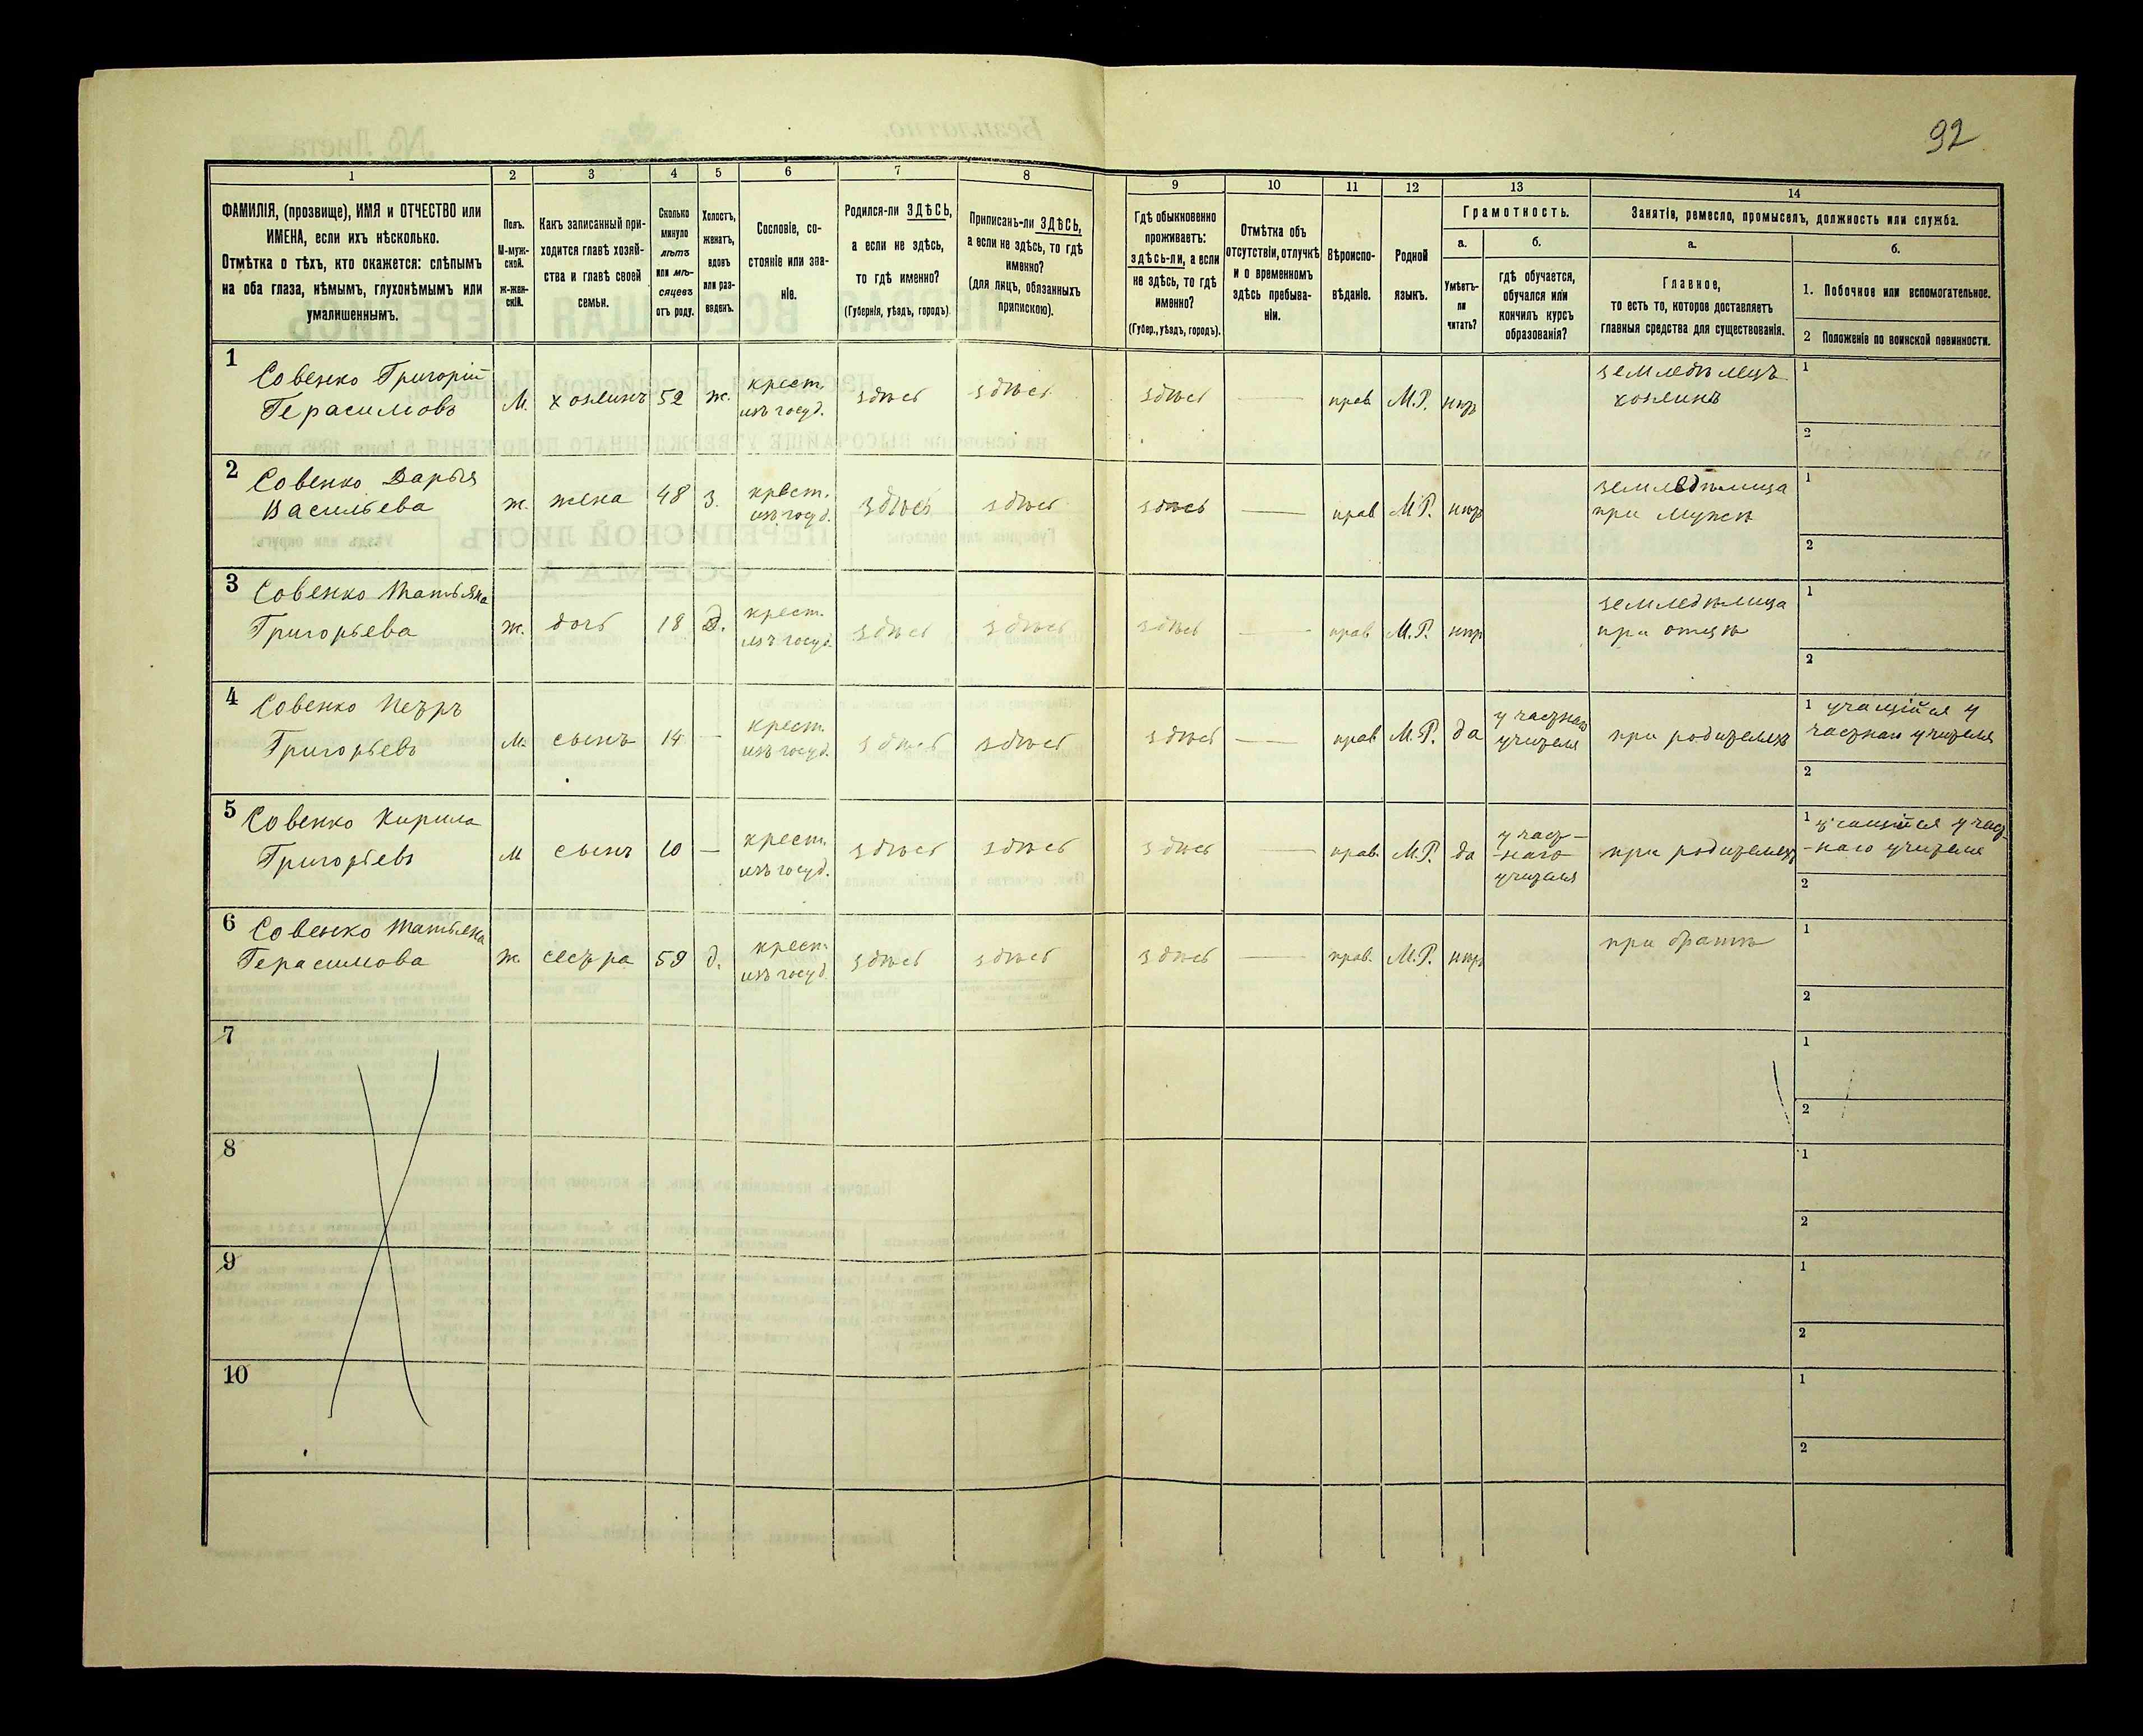 92
1
2
3
4
5
6
7
8
9
10
11
12
13
14
ФАМИЛІЯ, (прозвище), ИМЯ и ОТЧЕСТВО или
ИМЕНА, если ихъ нѣсколько.
Отмѣтка о тѣхъ, кто окажется: слѣпымъ
на оба глаза, нѣмымъ, глухонѣмымъ или
умалишеннымъ.
Полъ.
М-муж-
ской.
ж-жен-
скій.
Какъ записанный при-
ходится главѣ хозяй-
ства и главѣ своей
семьи.
Сколько
минуло
лѣтъ
или мѣ-
сяцевъ
отъ роду.
Холостъ,
женатъ,
вдовъ
или раз-
веденъ.
Сословіе, со-
стояніе или зва-
ніе.
Родился-ли ЗДѢСЬ,
а если не здѣсь,
то гдѣ именно?
(Губернія, уѣздъ, городъ).
Приписанъ-ли ЗДѢСЬ,
а если не здѣсь, то гдѣ
именно?
(для лицъ, обязанныхъ
припискою).
Гдѣ обыкновенно
проживаетъ:
здѣсь-ли, а если
не здѣсь, то гдѣ
именно?
(Губер., уѣздъ, городъ).
Отмѣтка объ
отсутствіи, отлучкѣ
и о временномъ
здѣсь пребыва-
ніи.
Вѣроиспо-
вѣданіе.
Родной
языкъ.
Грамотность.
а.
Умѣетъ-
ли
читать?
б.
гдѣ обучается,
обучался или
кончилъ курсъ
образованія?
Занятіе, ремесло, промыселъ, должность или служба.
а.
Главное,
то есть то, которое доставляетъ
главныя средства для существованія.
б.
1. Побочное или вспомогательное.
2 Положеніе по воинской повинности.
1
Совенко Григорій
Герасимовъ
М.
хозяинъ
52
ж.
крест.
изъ госуд.
здѣсь
здѣсь
здѣсь
—
прав.
М.Р.
нѣтъ
земледѣлецъ
хозяинъ
1
2
2
Совенко Дарья
Васильева
ж.
жена
48
з.
крест.
изъ госуд.
здѣсь
здѣсь
здѣсь
—
прав
М.Р.
нѣтъ
земледѣлица
при мужѣ
1
2
3
Совенко Татьяна
Григорьева
ж.
дочь
18
д.
крест.
изъ госуд.
здѣсь
здѣсь
здѣсь
—
прав.
М.Р.
нѣтъ
земледѣлица
при отцѣ
1
2
4
Совенко Петръ
Григорьевъ
М.
сынъ
14
—
крест.
изъ госуд.
здѣсь
здѣсь
здѣсь
—
прав
М.Р.
да
учителя
при родителяхъ
1 учащійся у
учителя
2
5
Совенко Кирила
Григорьевъ
М
сынъ
10
—
крест.
изъ госуд.
здѣсь
здѣсь
здѣсь
—
прав.
М.Р.
да
у част-
-наго
учителя
при родителяхъ
1 учащійся у част-
-наго учителя
2
6
Совенко Татьяна
Герасимова
ж.
сестра
59
д.
крест.
изъ госуд.
здѣсь
здѣсь
здѣсь
—
прав.
М.Р.
нѣтъ
при братѣ
1
2
7
1
2
8
1
2
9
1
2
10
1
2